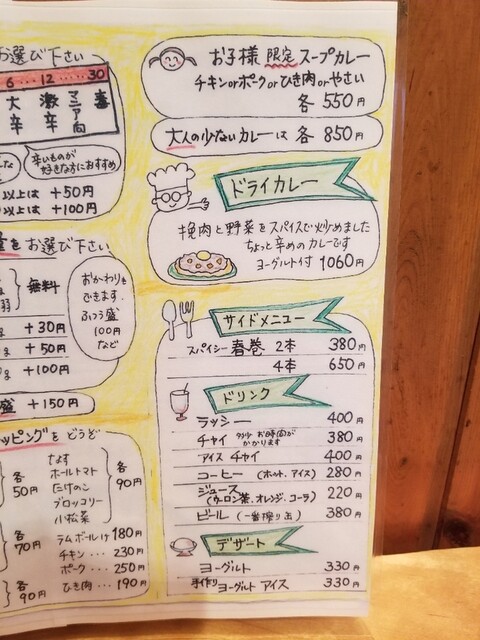 お選び下さい
6 … 12 … 30
大辛
激辛
マニア向
辛いものが
好きな方におすすめ
以上は +50円
以上は +100円
をお選び下さい
無料
おかわりも
できます.
ふつう盛
100円
など
+30円
+50円
+100円
盛 +150円
ッピングをどうぞ
各
50円
なす
ホールトマト
たけのこ
ブロッコリー
小松菜
各
90円
各
70円
ラムボール1ヶ 180円
チキン … 230円
ポーク … 250円
各
90円
ひき肉 … 190円
お子様 限定 スープカレー
チキンorポークorひき肉orやさい
各 550円
大人の少ないカレーは 各 850円
ドライカレー
挽肉と野菜をスパイスで炒めました
ちょっと辛めのカレーです
ヨーグルト付 1060円
サイドメニュー
スパイシー 春巻 2本 380円
4本 650円
ドリンク
ラッシー 400円
チャイ 多少お時間が かかります 380円
アイス チャイ 400円
コーヒー (ホット、アイス) 280円
ジュース (ウーロン茶、オレンジ、コーラ) 220円
ビール (一番搾り缶) 380円
デザート
ヨーグルト 330円
手作り ヨーグルト アイス 330円